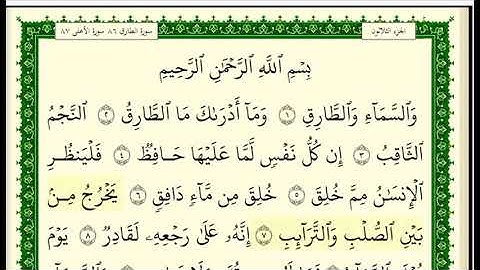 سورة الطارق ٨٦ سورة الأعلى ٨٧
الجزء الثلاثون
بِسْمِ ٱللَّهِ ٱلرَّحْمَٰنِ ٱلرَّحِيمِ
وَٱلسَّمَآءِ وَٱلطَّارِقِ ١ وَمَآ أَدْرَىٰكَ مَا ٱلطَّارِقُ ٢ ٱلنَّجْمُ
ٱلثَّاقِبُ ٣ إِن كُلُّ نَفْسٍ لَّمَّا عَلَيْهَا حَافِظٌ ٤ فَلْيَنظُرِ
ٱلْإِنسَٰنُ مِمَّ خُلِقَ ٥ خُلِقَ مِن مَّآءٍ دَافِقٍ ٦ يَخْرُجُ مِنۢ
بَيْنِ ٱلصُّلْبِ وَٱلتَّرَآئِبِ ٧ إِنَّهُۥ عَلَىٰ رَجْعِهِۦ لَقَادِرٌ ٨ يَوْمَ